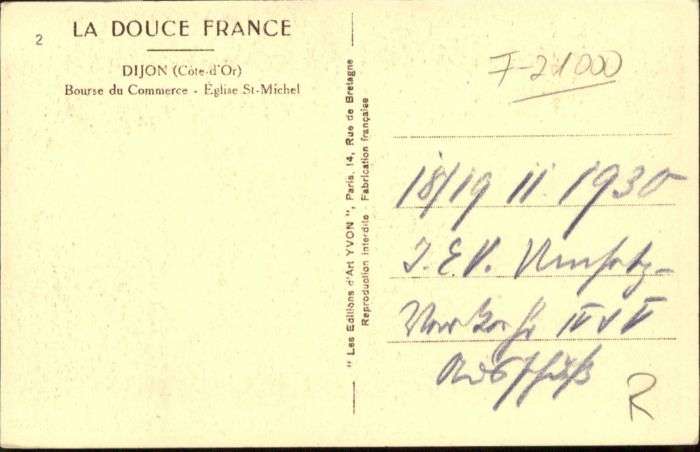 2
LA DOUCE FRANCE
DIJON (Côte-d'Or)
Bourse du Commerce - Église St-Michel
" Les Editions d'Art YVON ", Paris, 14, Rue de Bretagne
Reproduction interdite - Fabrication française
F-21000
18/19 11. 1930
J.E.V.
IV V
R